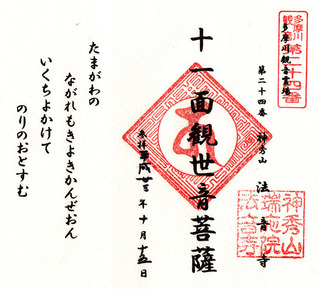 多摩川
観音霊場
第二十四番
多摩川観音霊場
第二十四番 神秀山
法音寺
十一面観世音菩薩
奉拝 平成廿三年十月十五日
たまがわの
ながれもきよきかんぜおん
いくちよかけて
のりのおとすむ
神秀山
瑞応院
法音寺